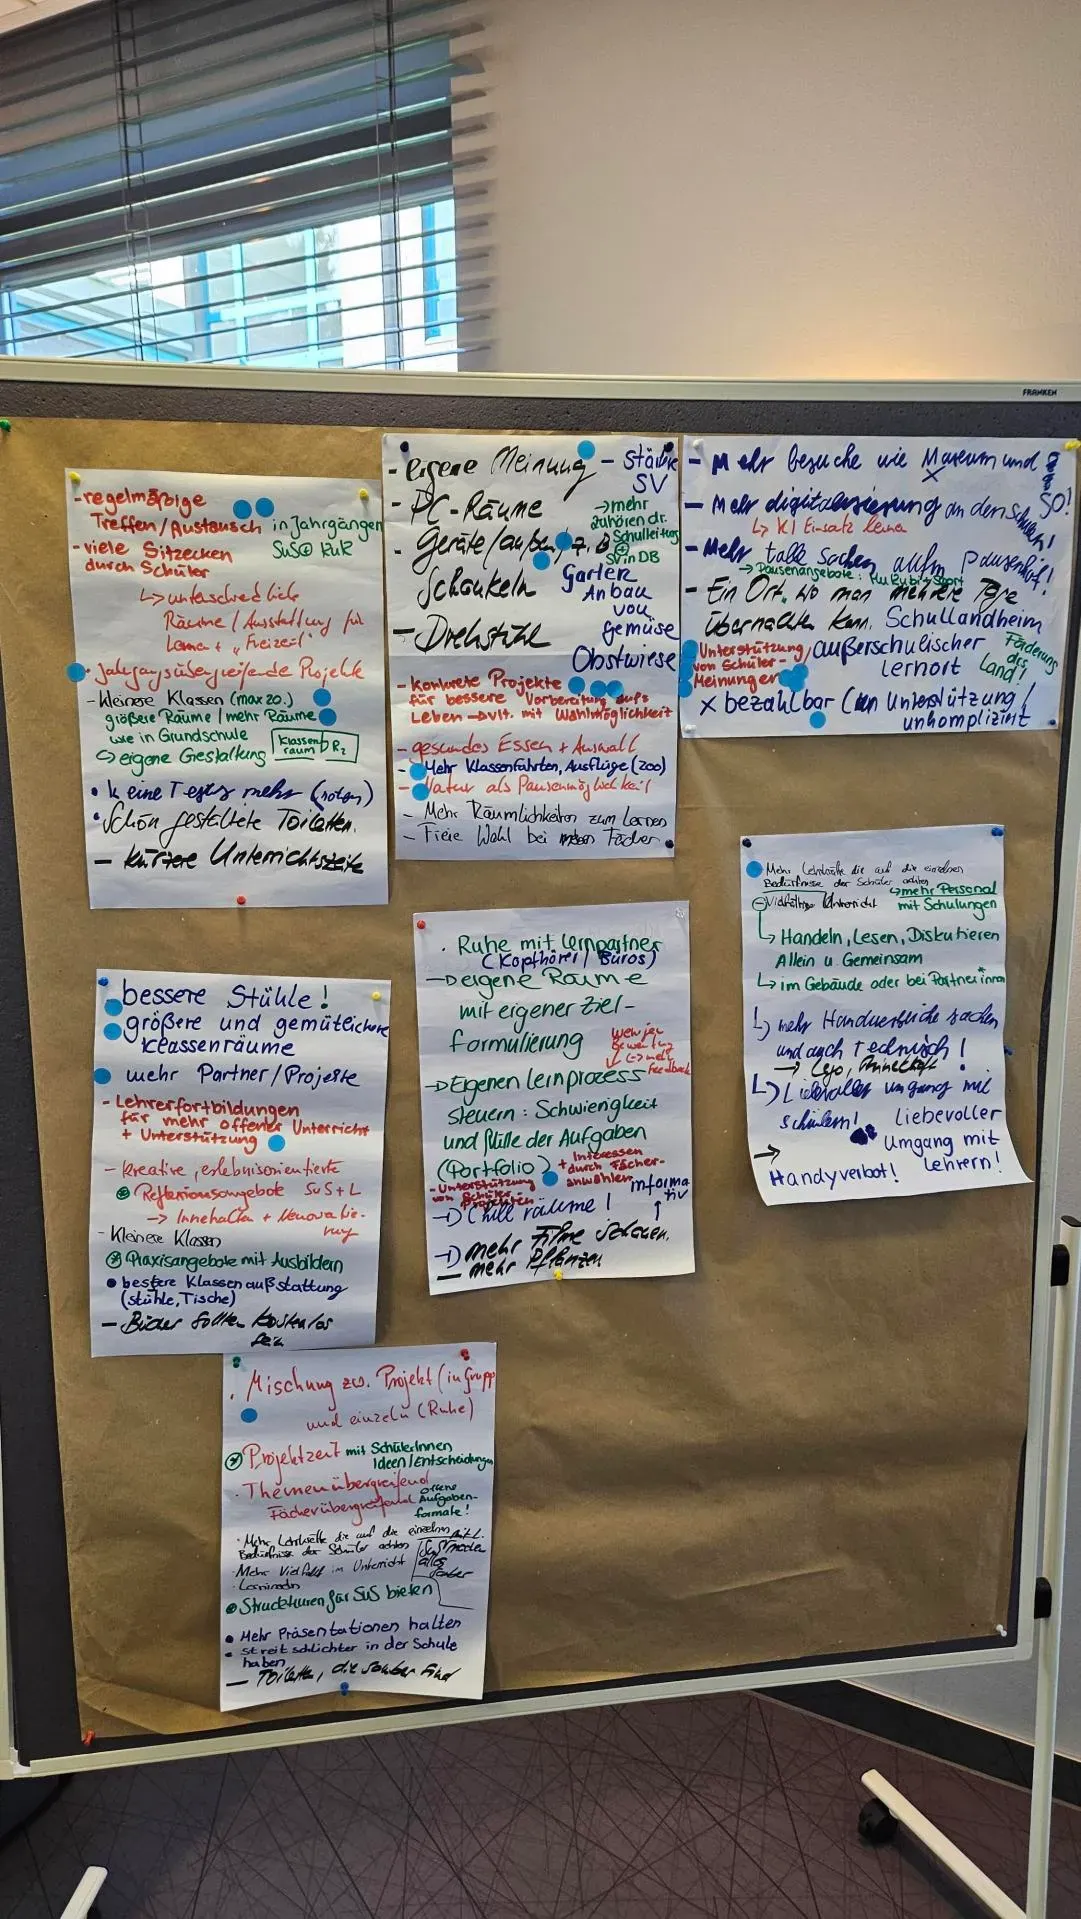 FRANKEN
-regelmäßige
Treffen/Austausch in Jahrgängen
SuS KuK
-viele Sitzecken
durch Schüler
↳ unterschiedliche
Räume/Ausstattung für
Lernen + "Freizeit"
· Jahrgangsübergreifende Projekte
- kleinere Klassen (max 20.)
größere Räume/mehr Räume
wie in Grundschule
↳ eigene Gestaltung
Klassenraum R2
• keine Tests mehr (roten)
• Schön gestaltete Toiletten.
- kürzere Unterrichtszeite
- eigene Meinung
- PC-Räume
- Geräte/außen, z. B
Schaukeln
- Drehstühle
- Stärke
SV
→mehr
zuhören dr.
Schulleitung
⊕
SV in DB
Garten
Anbau
von
gemüse
Obstwiese
- konkrete Projekte
für bessere Vorbereitung aufs
Leben →vlt. mit Wahlmöglichkeit
- gesundes Essen + Auswahl
- Mehr Klassenfahrten, Ausflüge (zoo)
- Natur als Pausenmöglichkeit
- Mehr Räumlichkeiten zum Lernen
- Freie Wahl bei Fächer
- Mehr besuche wie Museum und
SO!
- Mehr digitalisierung an den Schulen!
↳ KI Einsatz lernen
- Mehr tolle sachen aufm Pausenhof!
→ Pausenangebote:
- Ein Ort, wo man mehrere Tage
übernachten kann. Schullandheim
Unterstützung
von Schüler-
Meinungen
/außerschulischer
lernort
Förderung
des
Land!
x bezahlbar (an Unterstützung/
unkompliziert
· Mehr Lehrkräfte die auf die einzelnen
Bedürfnisse der Schüler achten
↳mehr Personal
mit Schulungen
Vielfältige Unterricht
↳ Handeln, Lesen, Diskutieren
Allein u. Gemeinsam
↳ im Gebäude oder bei Partner*innen
↳ mehr Handwerkliche sachen
und auch Technisch!
→ Lego, Minecraft
↳ Liebevoller umgang mit
schülern!
Liebevoller
Umgang mit
Lehrern!
→
Handyverbot!
· Ruhe mit lernpartner
(Kopfhörer/Büros)
→ eigene Räume
mit eigener Ziel-
formulierung
weniger
Bewertung
↳ mehr
Feedback
→ Eigenen lernprozess
steuern: Schwierigkeit
und fülle der Aufgaben
(Portfolio)
+ Interessen
durch Fächer-
anwählen
- Unterstützung
von Schüler-
Projekten
informativ
↑
→ Chill räume!
→ mehr Filme schauen.
— mehr Pflanzen
· bessere Stühle!
· größere und gemütlichere
klassenräume
· mehr Partner/Projekte
- Lehrerfortbildungen
für mehr offener Unterricht
+ Unterstützung
- kreative, erlebnisorientierte
Reflexionsangebote SuS+L
→ Innehalten + Renovatierung
- Kleinere Klassen
Praxisangebote mit Ausbildern
• bessere Klassenausstattung
(stühle, Tische)
— Bücher sollten kostenlos
sein
· Mischung zw. Projekt (in Grupp
und einzeln (Ruhe)
Projektzeit mit SchülerInnen
Ideen/Entscheidungen
· Themenübergreifend
Fächerübergreifend
offene
Aufgaben-
formate!
· Mehr Lehrkräfte die auf die einzelnen
Bedürfnisse der Schüler achten
· Mehr Vielfalt im Unterricht
Strukturen für SuS bieten
• Mehr Präsentationen halten
• streitschlichter in der Schule
haben
— Toiletten, die sauber sind